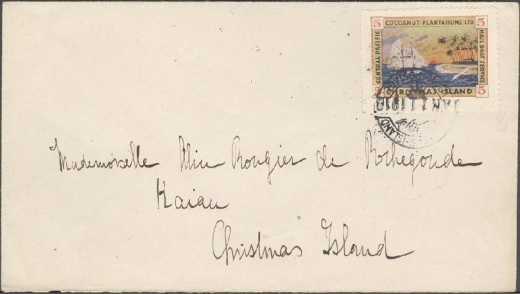 5 COCOANUT PLANTATIONS LTD 5
CENTRAL PACIFIC
MAIL BOAT SERVICE
5 CHRISTMAS ISLAND 5
JAN 1 1918
Mademoiselle Alice Rougier de Rochegonde
Kaiau
Christmas Island